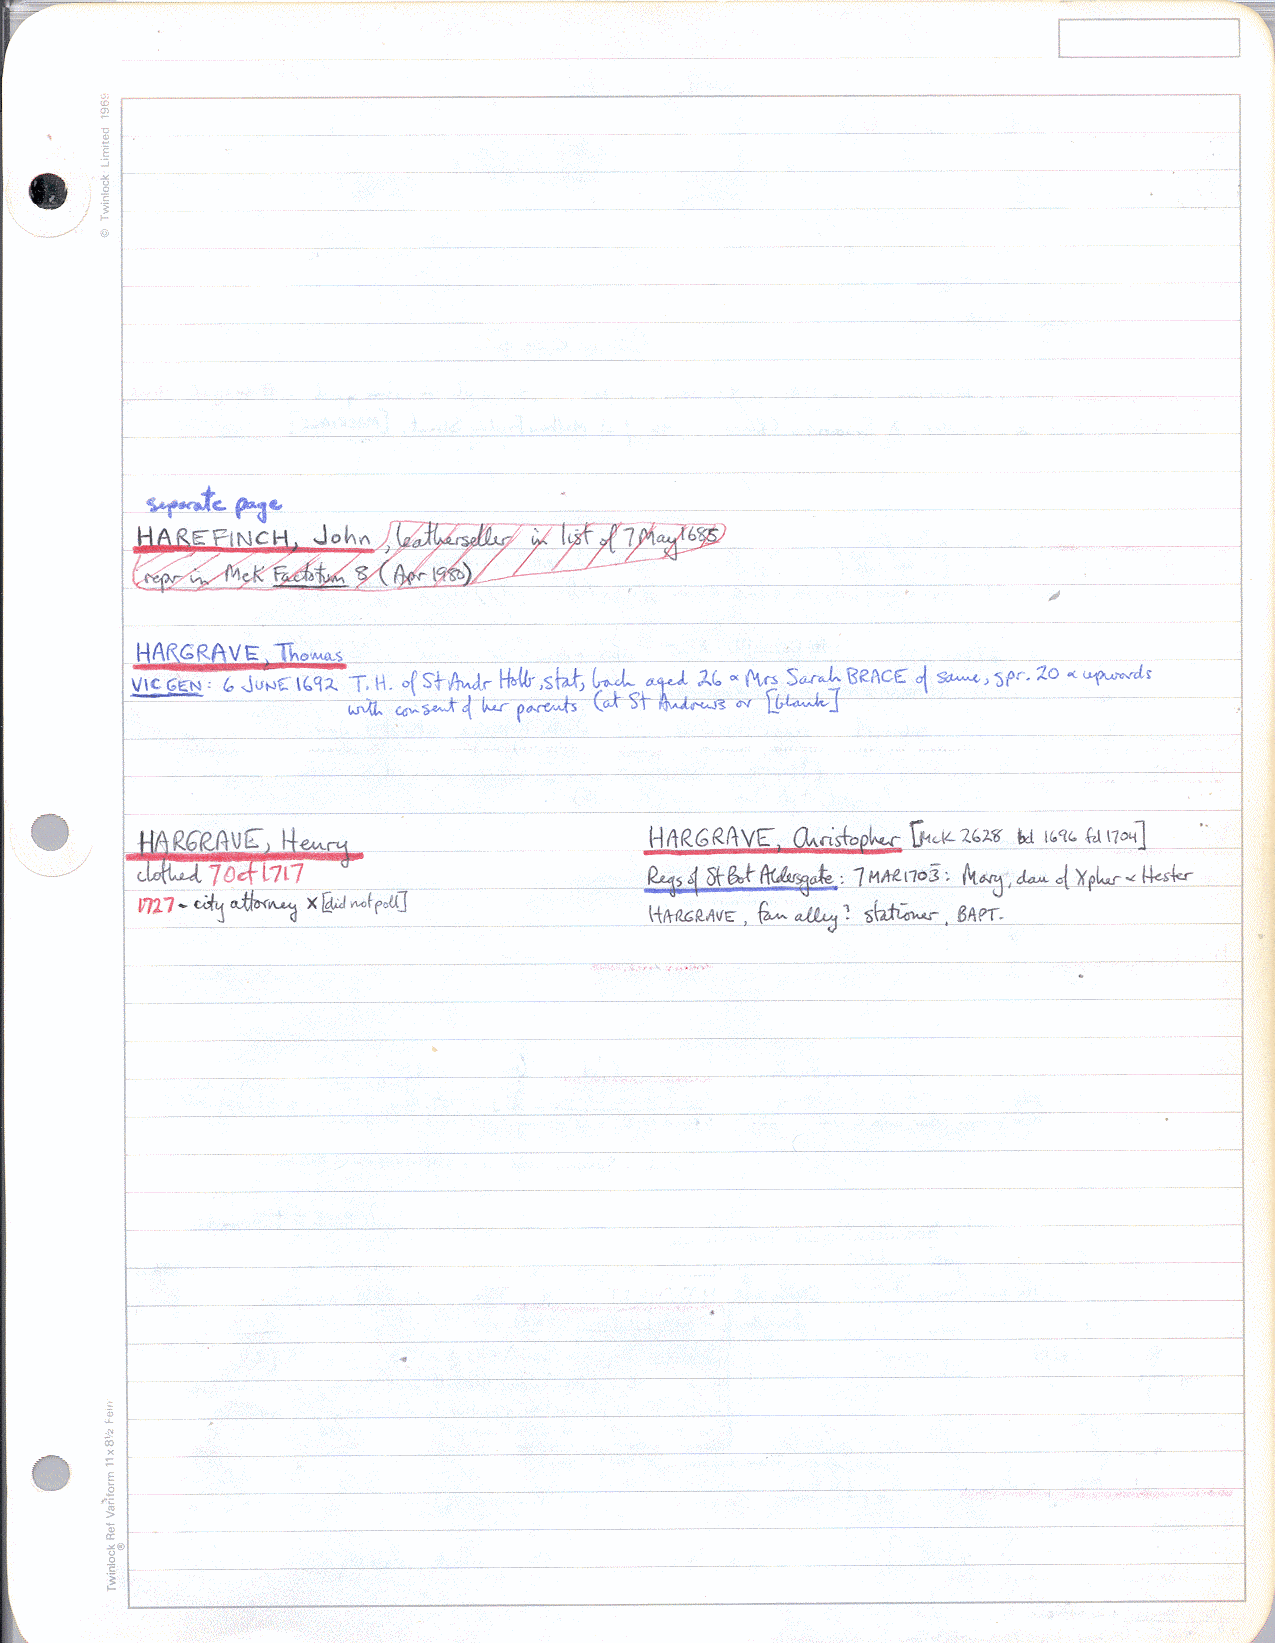 © Twinlock Limited 1969
separate page
HAREFINCH, John, leatherseller in list of 7 May 1685
repr in McK Factotum 8 (Apr 1980)
HARGRAVE, Thomas
VIC GEN: 6 JUNE 1692 T.H. of St Andr Holb, stat, bach aged 26 & Mrs Sarah BRACE of same, spr. 20 & upwards
with consent of her parents (at St Andrews or [blank]
HARGRAVE, Henry
clothed 7 Oct 1717
1727 - city attorney X [did not poll]
HARGRAVE, Christopher [McK 2628 bd 1696 fd 1704]
Regs of St Bot Aldersgate: 7 MAR 1703: Mary, dau of Xpher & Hester
HARGRAVE, fan alley? stationer, BAPT.
Twinlock Ref Variform 11 x 8½ Fein